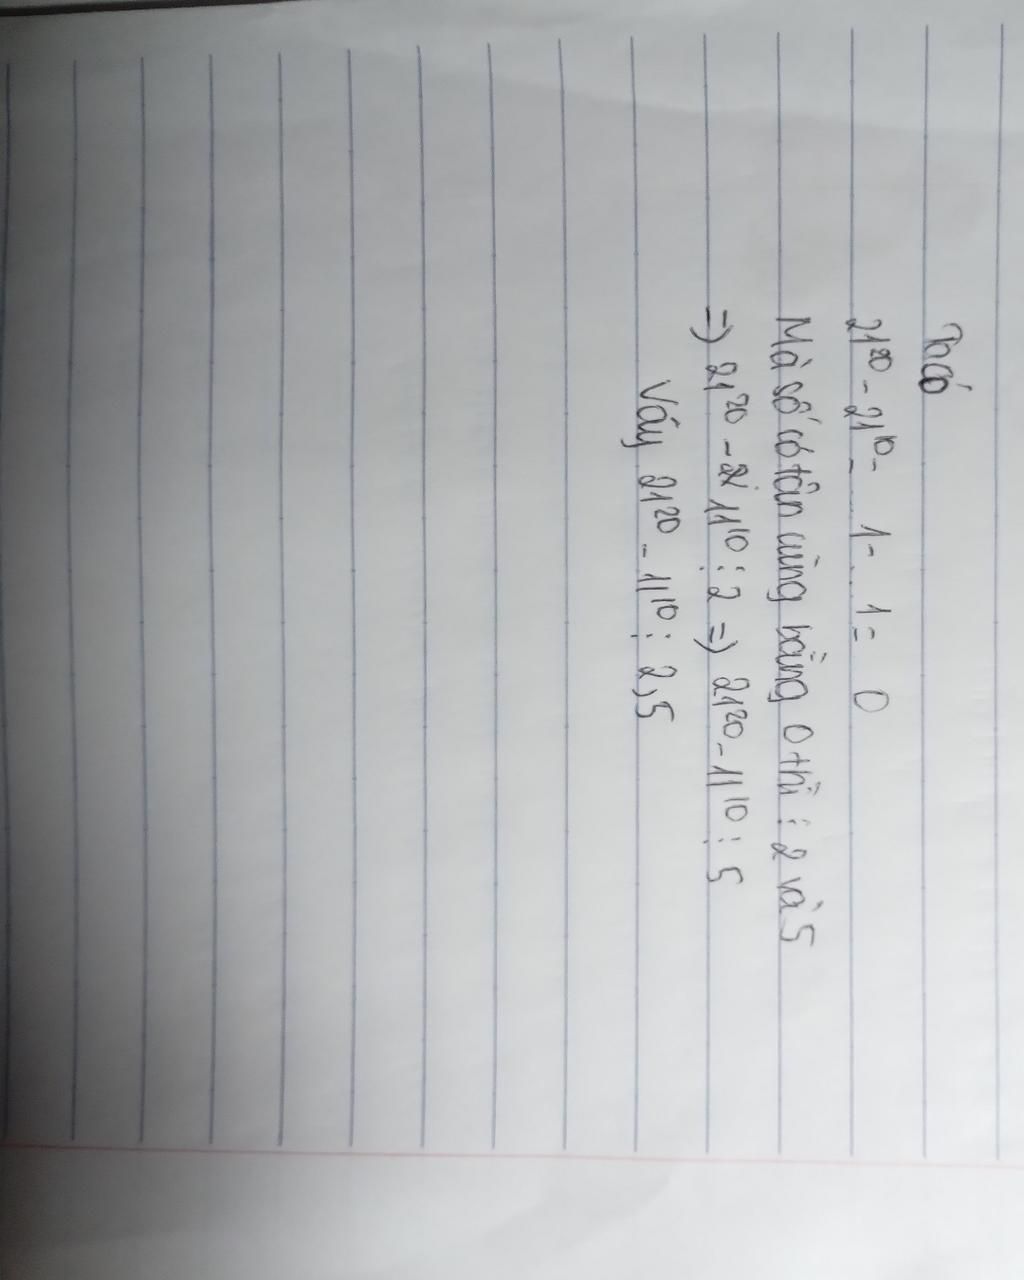 Ta có
21²⁰ - 21¹⁰ - ... 1 - ... 1 = 0
Mà số có tân cùng bằng 0 thì ⋮ 2 và 5
=) 21²⁰ - 11¹⁰ ⋮ 2 =) 21²⁰ - 11¹⁰ ⋮ 5
Váy 21²⁰ - 11¹⁰ ⋮ 2,5